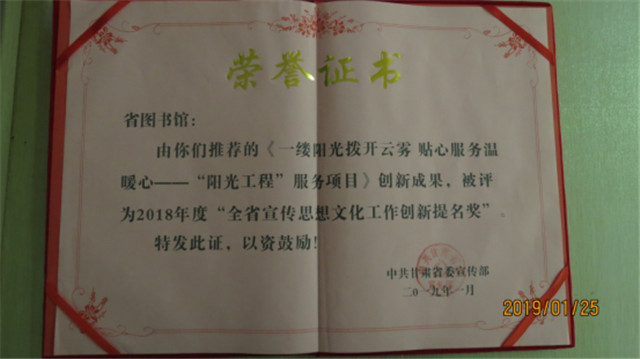 荣誉证书
省图书馆：
由你们推荐的《一缕阳光拨开云雾 贴心服务温
暖心——“阳光工程”服务项目》创新成果，被评
为2018年度“全省宣传思想文化工作创新提名奖”
特发此证，以资鼓励！
中共甘肃省委宣传部
二〇一九年一月
2019/01/25